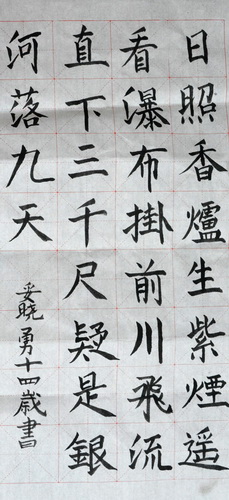 日照香爐生紫煙遥
看瀑布掛前川飛流
直下三千尺疑是銀
河落九天
晓勇十四歳書